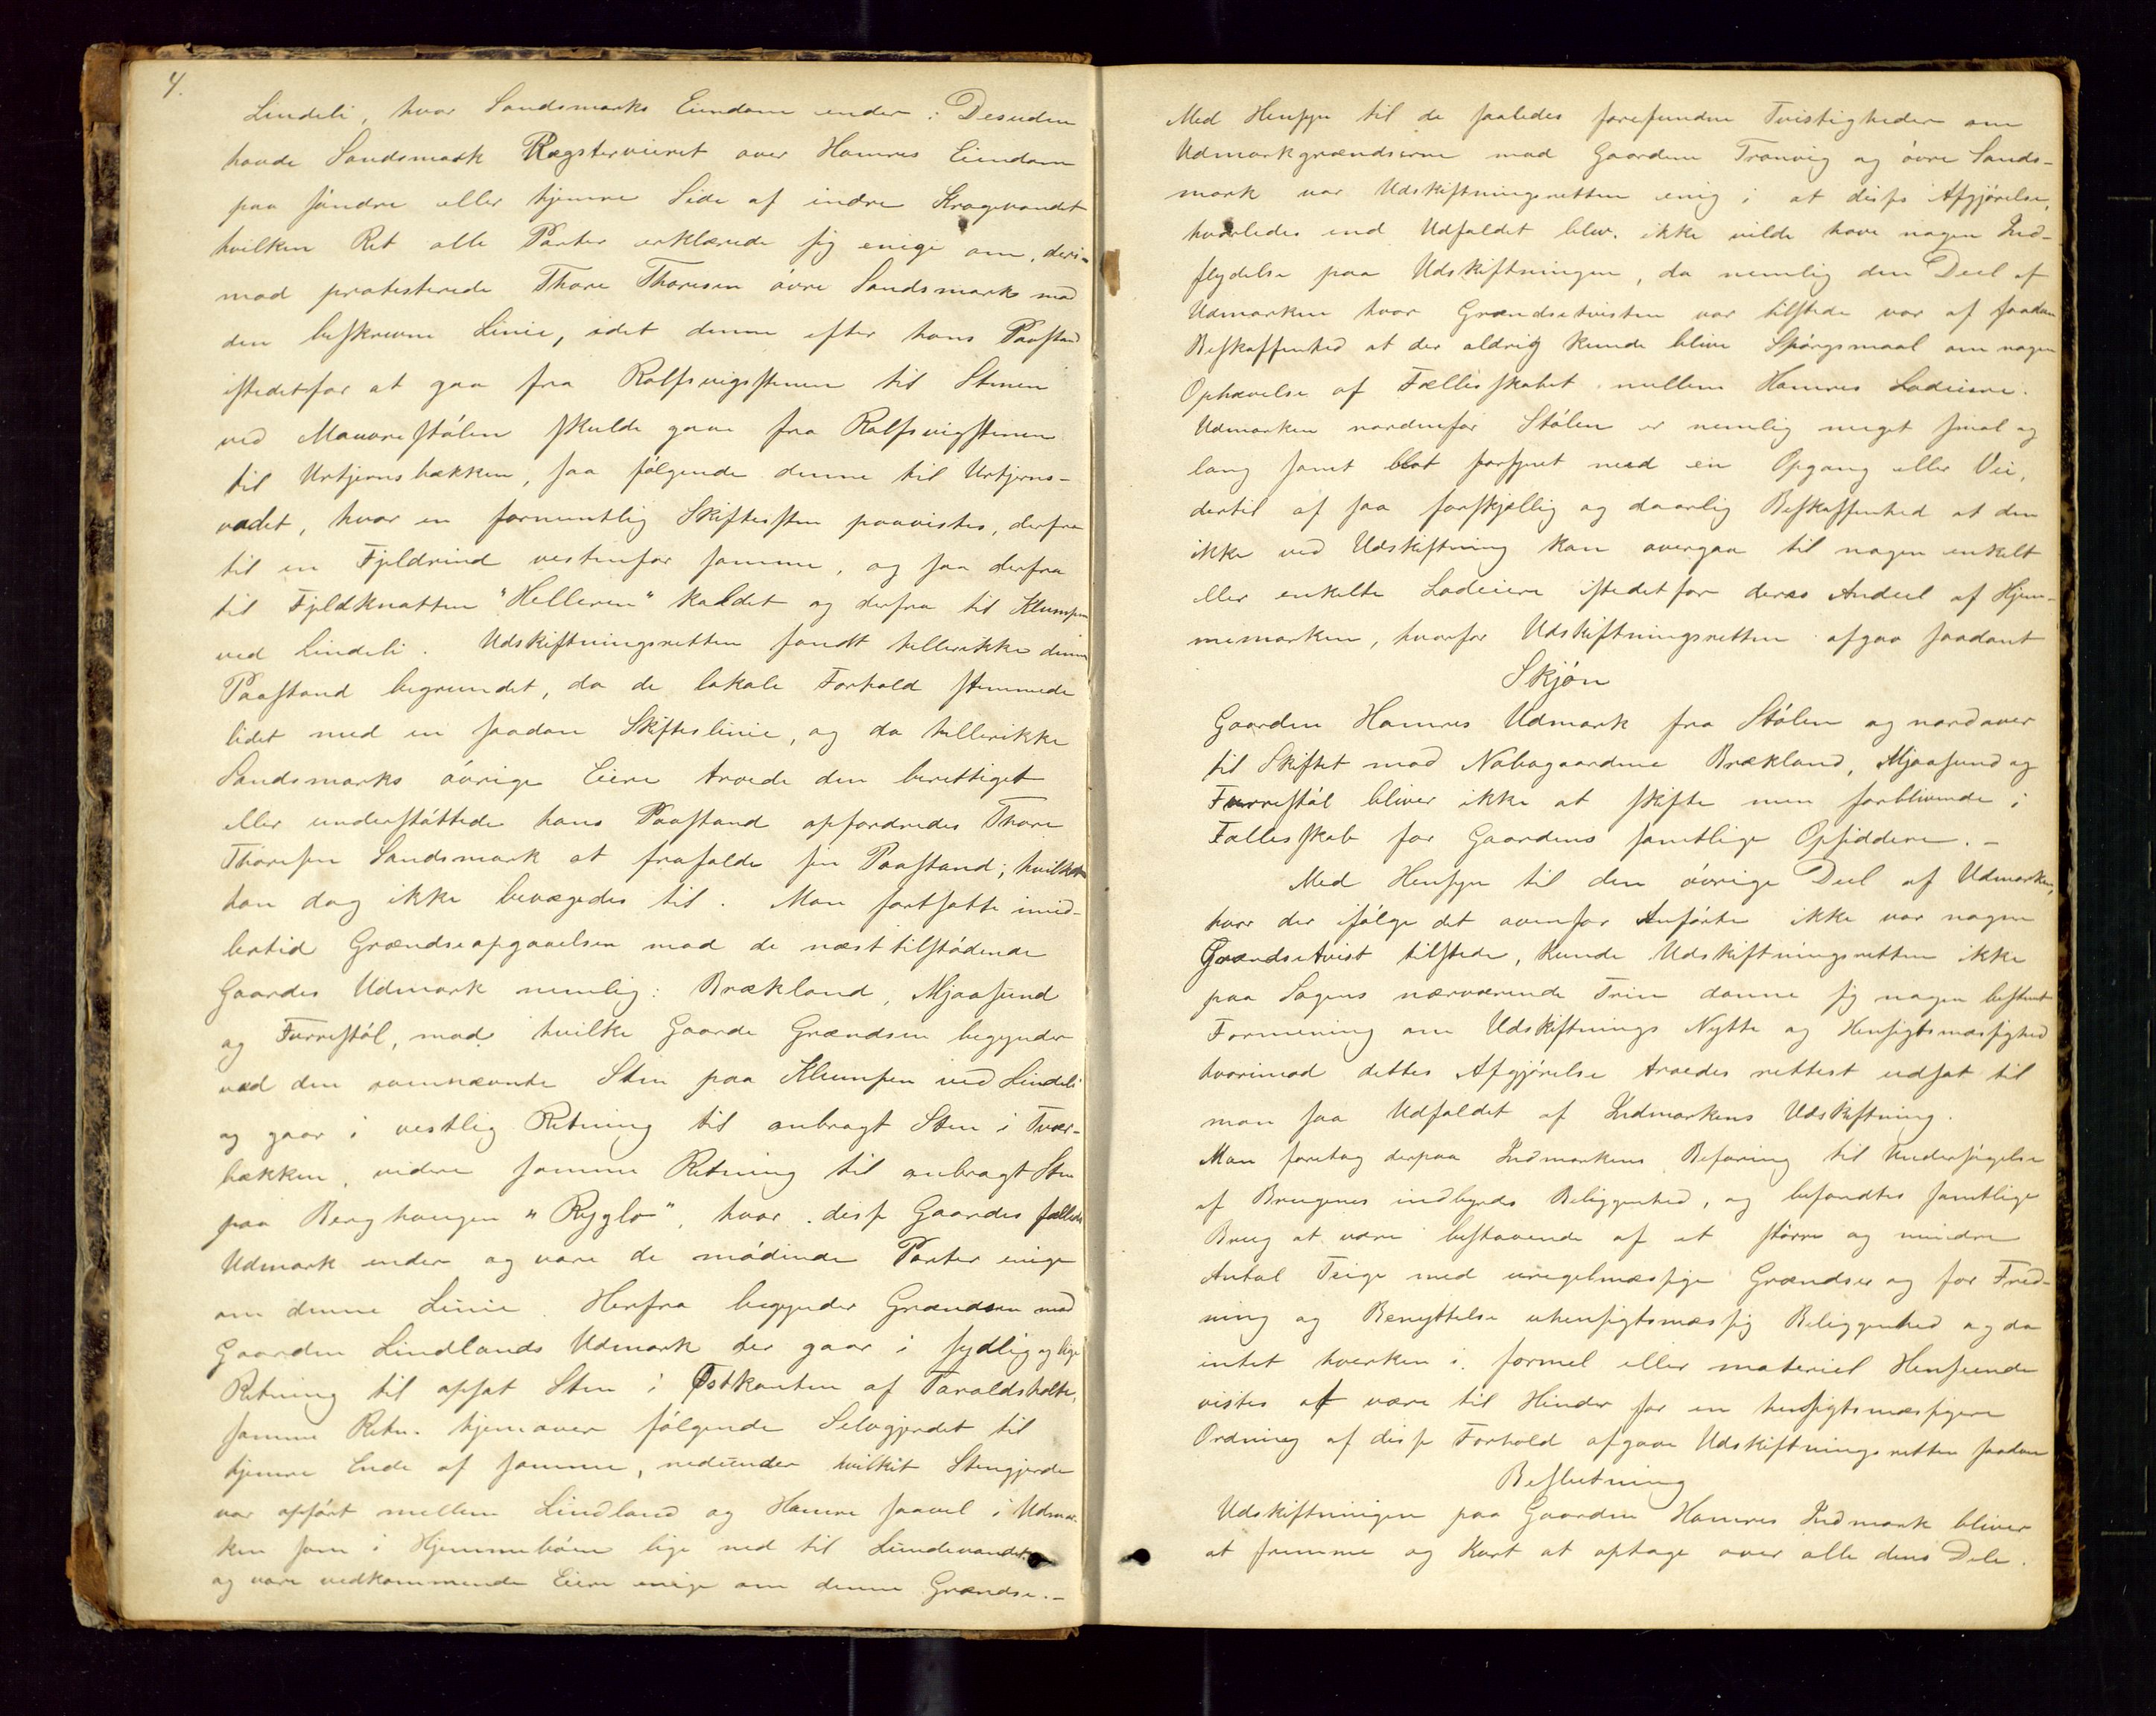 4.
Lindeli, hvor Sandsmarks Eiendom ender. Desuden
havde Sandsmark Rægsterveieret over Hamres Eiendom
paa søndre eller hjemre Side af indre Kragevandet
hvilken Ret alle Parter erklærede sig enige om, deri-
mod protesterede Thore Thoresen øvre Sandsmark mod
den beskrevne Linie, idet denne efter hans Paastand
istedetfor at gaa fra Rolfsvigstenen til Stenen
ved Mauvrestølen skulde gaae fra Rolfsvigstenen
til Urtjernsbækken, saa følgende denne til Urtjerns-
vadet, hvor en formentlig Skiftessten paavistes, derfra
til en Fjeldrind vestenfor samme, og saa derfra
til Fjeldknatten "Helleren" kaldet og derfra til Klumpen
ved Lindeli. Udskiftningsretten fandt hellerikke denne
Paastand begrundet, da de lokale Forhold stemmede
lidet med en saadan Skifteslinie, og da hellerikke
Sandsmarks øvrige Eiere troede den berettiget
eller understøttede hans Paastand opfordredes Thore
Thoresen Sandsmark at frafalde sin Paastand; hvilket
han dog ikke bevægedes til. Man fortsatte imid-
lertid Grændseopgaaelsen mod de næst tilstødende
Gaardes Udmark nemlig: Brækland, Mjaasund
og Furrestøl, mod hvilke Gaarde Grændsen begynder
ved den ovennævnte Sten paa Klumpen ved Lindeli
og gaar i vestlig Retning til anbragt Sten i Tver-
bækken, videre samme Retning til anbragt Sten
paa Berghougen "Ryglo", hvor disse Gaardes fælleds
Udmark ender og vare de mødende Parter enige
om denne Linie. Herfra begynder Grændsen mod
Gaarden Lindlands Udmark der gaar i sydlig og lige
Retning til opsat Sten i Østkanten af Taraldsholte,
samme Retn. hjemover følgende Selvgjerdet til
hjemre Ende af samme, nedenunder hvilket Stengjerde
var opført mellem Lindland og Hamre saavel i Udmar-
ken som i Hjemmebøen lige ned til Lundevandet
og vare vedkommende Eiere enige om denne Grændse.-
Med Hensyn til de saaledes forefundne Tvistigheder om
Udmarkgrændserne mod Gaardene Tronvig og øvre Sands-
mark var Udskiftningsretten enig i at disse Afgjørelse,
hvorledes end Udfaldet blev. ikke vilde have nogen Ind-
flydelse paa Udskiftningen, da nemlig den Deel af
Udmarken hvor Grændsetvisten var tilstede var af saadan
Beskaffenhed at der aldrig kunde blive Spørgsmaal om nogen
Ophævelse af Fællesskabet mellem Hamres Lodeiere.
Udmarken nordenfor Stølen er nemlig meget smal og
lang samt blot forsynet med en Opgang eller Vei,
dertil af saa forskjellig og daarlig Beskaffenhed at den
ikke ved Udskiftning kan overgaa til nogen enkelt
eller enkelte Lodeiere istedetfor deres Andeel af Hjem-
memarken, hvorfor Udskiftningsretten afgav saadant
Skjøn
Gaarden Hamres Udmark fra Stølen og nordover
til Skiftet mod Nabogaardene Brækland, Mjaasund og
Furrestøl bliver ikke at skifte men forblivende i
Fællesskab for Gaardens samtlige Opsiddere.-
Med Hensyn til den øvrige Deel af Udmarken,
hvor der ifølge det ovenfor Anførte ikke var nogen
Grændsetvist tilstede, kunde Udskiftningsretten ikke
paa Sagens nærværende Trin danne sig nogen bestemt
Formening om Udskiftnings Nytte og Hensigtsmæssighed
hvorimod dettes Afgjørelse troedes rettest udsat til
man saa Udfaldet af Indmarkens Udskiftning.
Man foretog derpaa Indmarkens Befaring til Undersøgelse
af Brugenes indbyrds Beliggenhed, og befandtes samtlige
Brug at være bestaaende af et større og mindre
Antal Teige med uregelmæssige Grændser og for Fred-
ning og Benyttelse uhensigtsmæssig Beliggenhed og da
intet hverken i formel eller materiel Henseende
vistes at være til Hinder for en hensigtsmæssigere
Ordning af disse Forhold afgave Udskiftningsretten saadan
Beslutning
Udskiftningen paa Gaarden Hamres Indmark bliver
at fremme og Kart at optage over alle dens Dele.